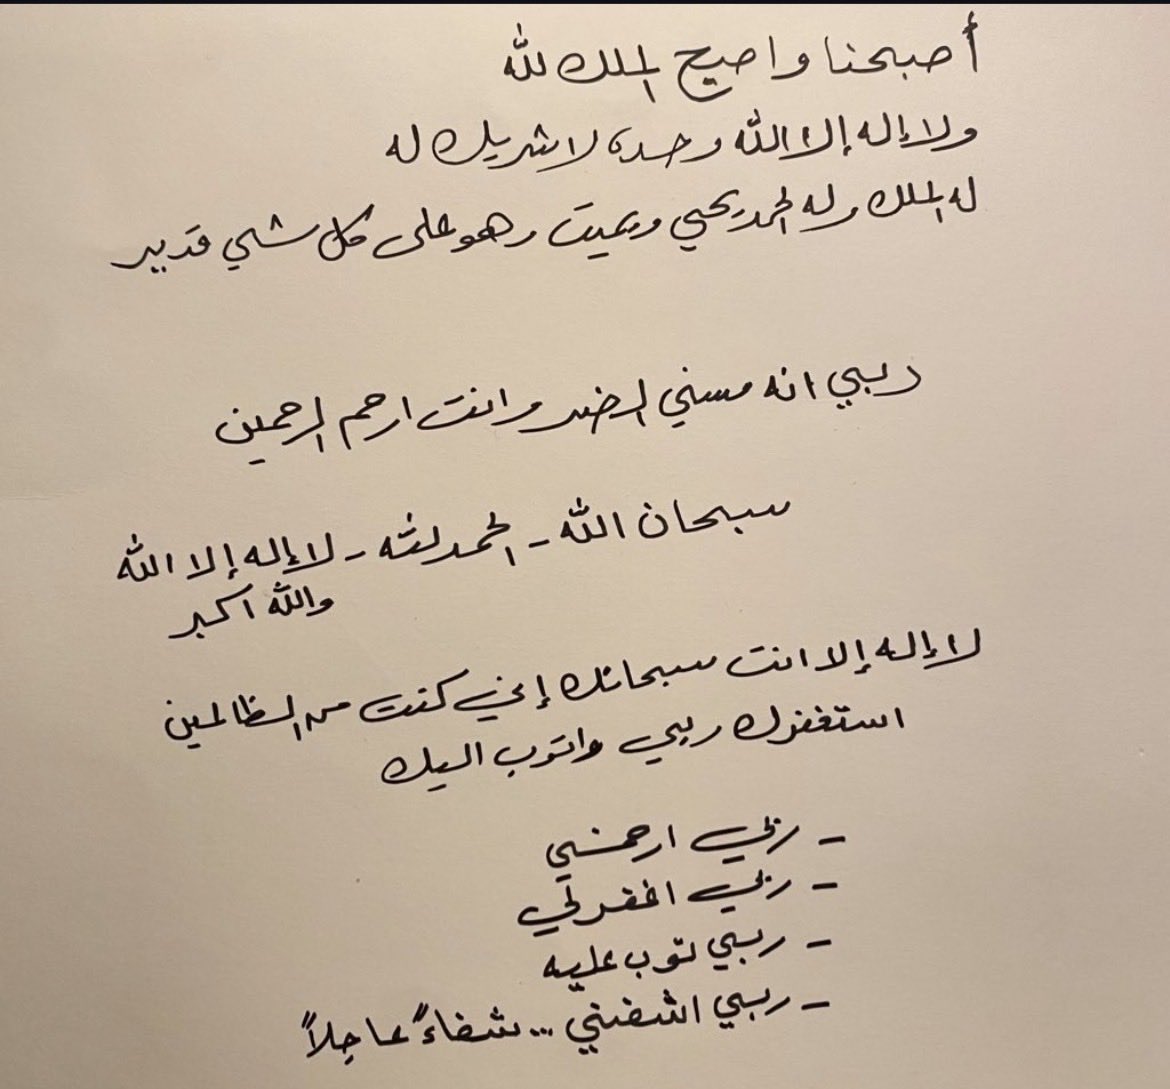 أصبحنا واصبح الملك لله
ولا إله إلا الله وحده لا شريك له
له الملك وله الحمد يحيي ويميت وهو على كل شي قدير
ربي انه مسني الضر وانت ارحم الرحمين
سبحان الله - الحمد لله - لا إله إلا الله
والله اكبر
لا إله إلا انت سبحانك إني كنت من الظالمين
استغفرك ربي واتوب اليك
- ربي ارحمني
- ربي اغفرلي
- ربي توب عليه
- ربي اشفني .. شفاءً عاجلاً